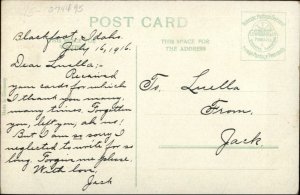 POST CARD
THIS SPACE FOR
THE ADDRESS
Blackfoot, Idaho.
July 16, 1916.
Dear Luella:-
Received
your cards for which
I thank you many,
many times. Forgotten
you, left you, ah no!
But I am so sorry I
neglected to write for so
long. Forgive me please.
With love,
Jack
To, Luella
From,
Jack